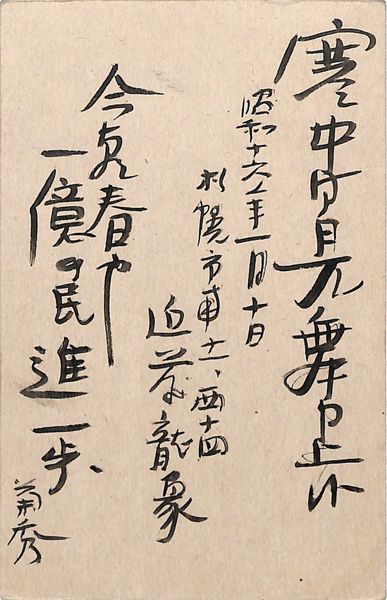 寒中御見舞申上候
昭和十六年一月十日
札幌市南十一、西十四
近藤龍象
今春や
一億の民進一歩、
菊秀